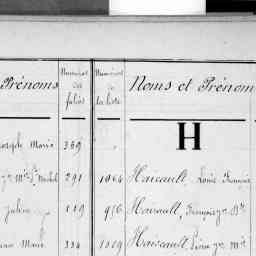 Prénoms Numéros des folios Numéros de la liste Noms et Prénom
H
Joseph Marie 359 "
291 1064 Haicault, Louis François
Julien 119 956 Haicault, François
Marie 334 1019 Haiscault, Pierre